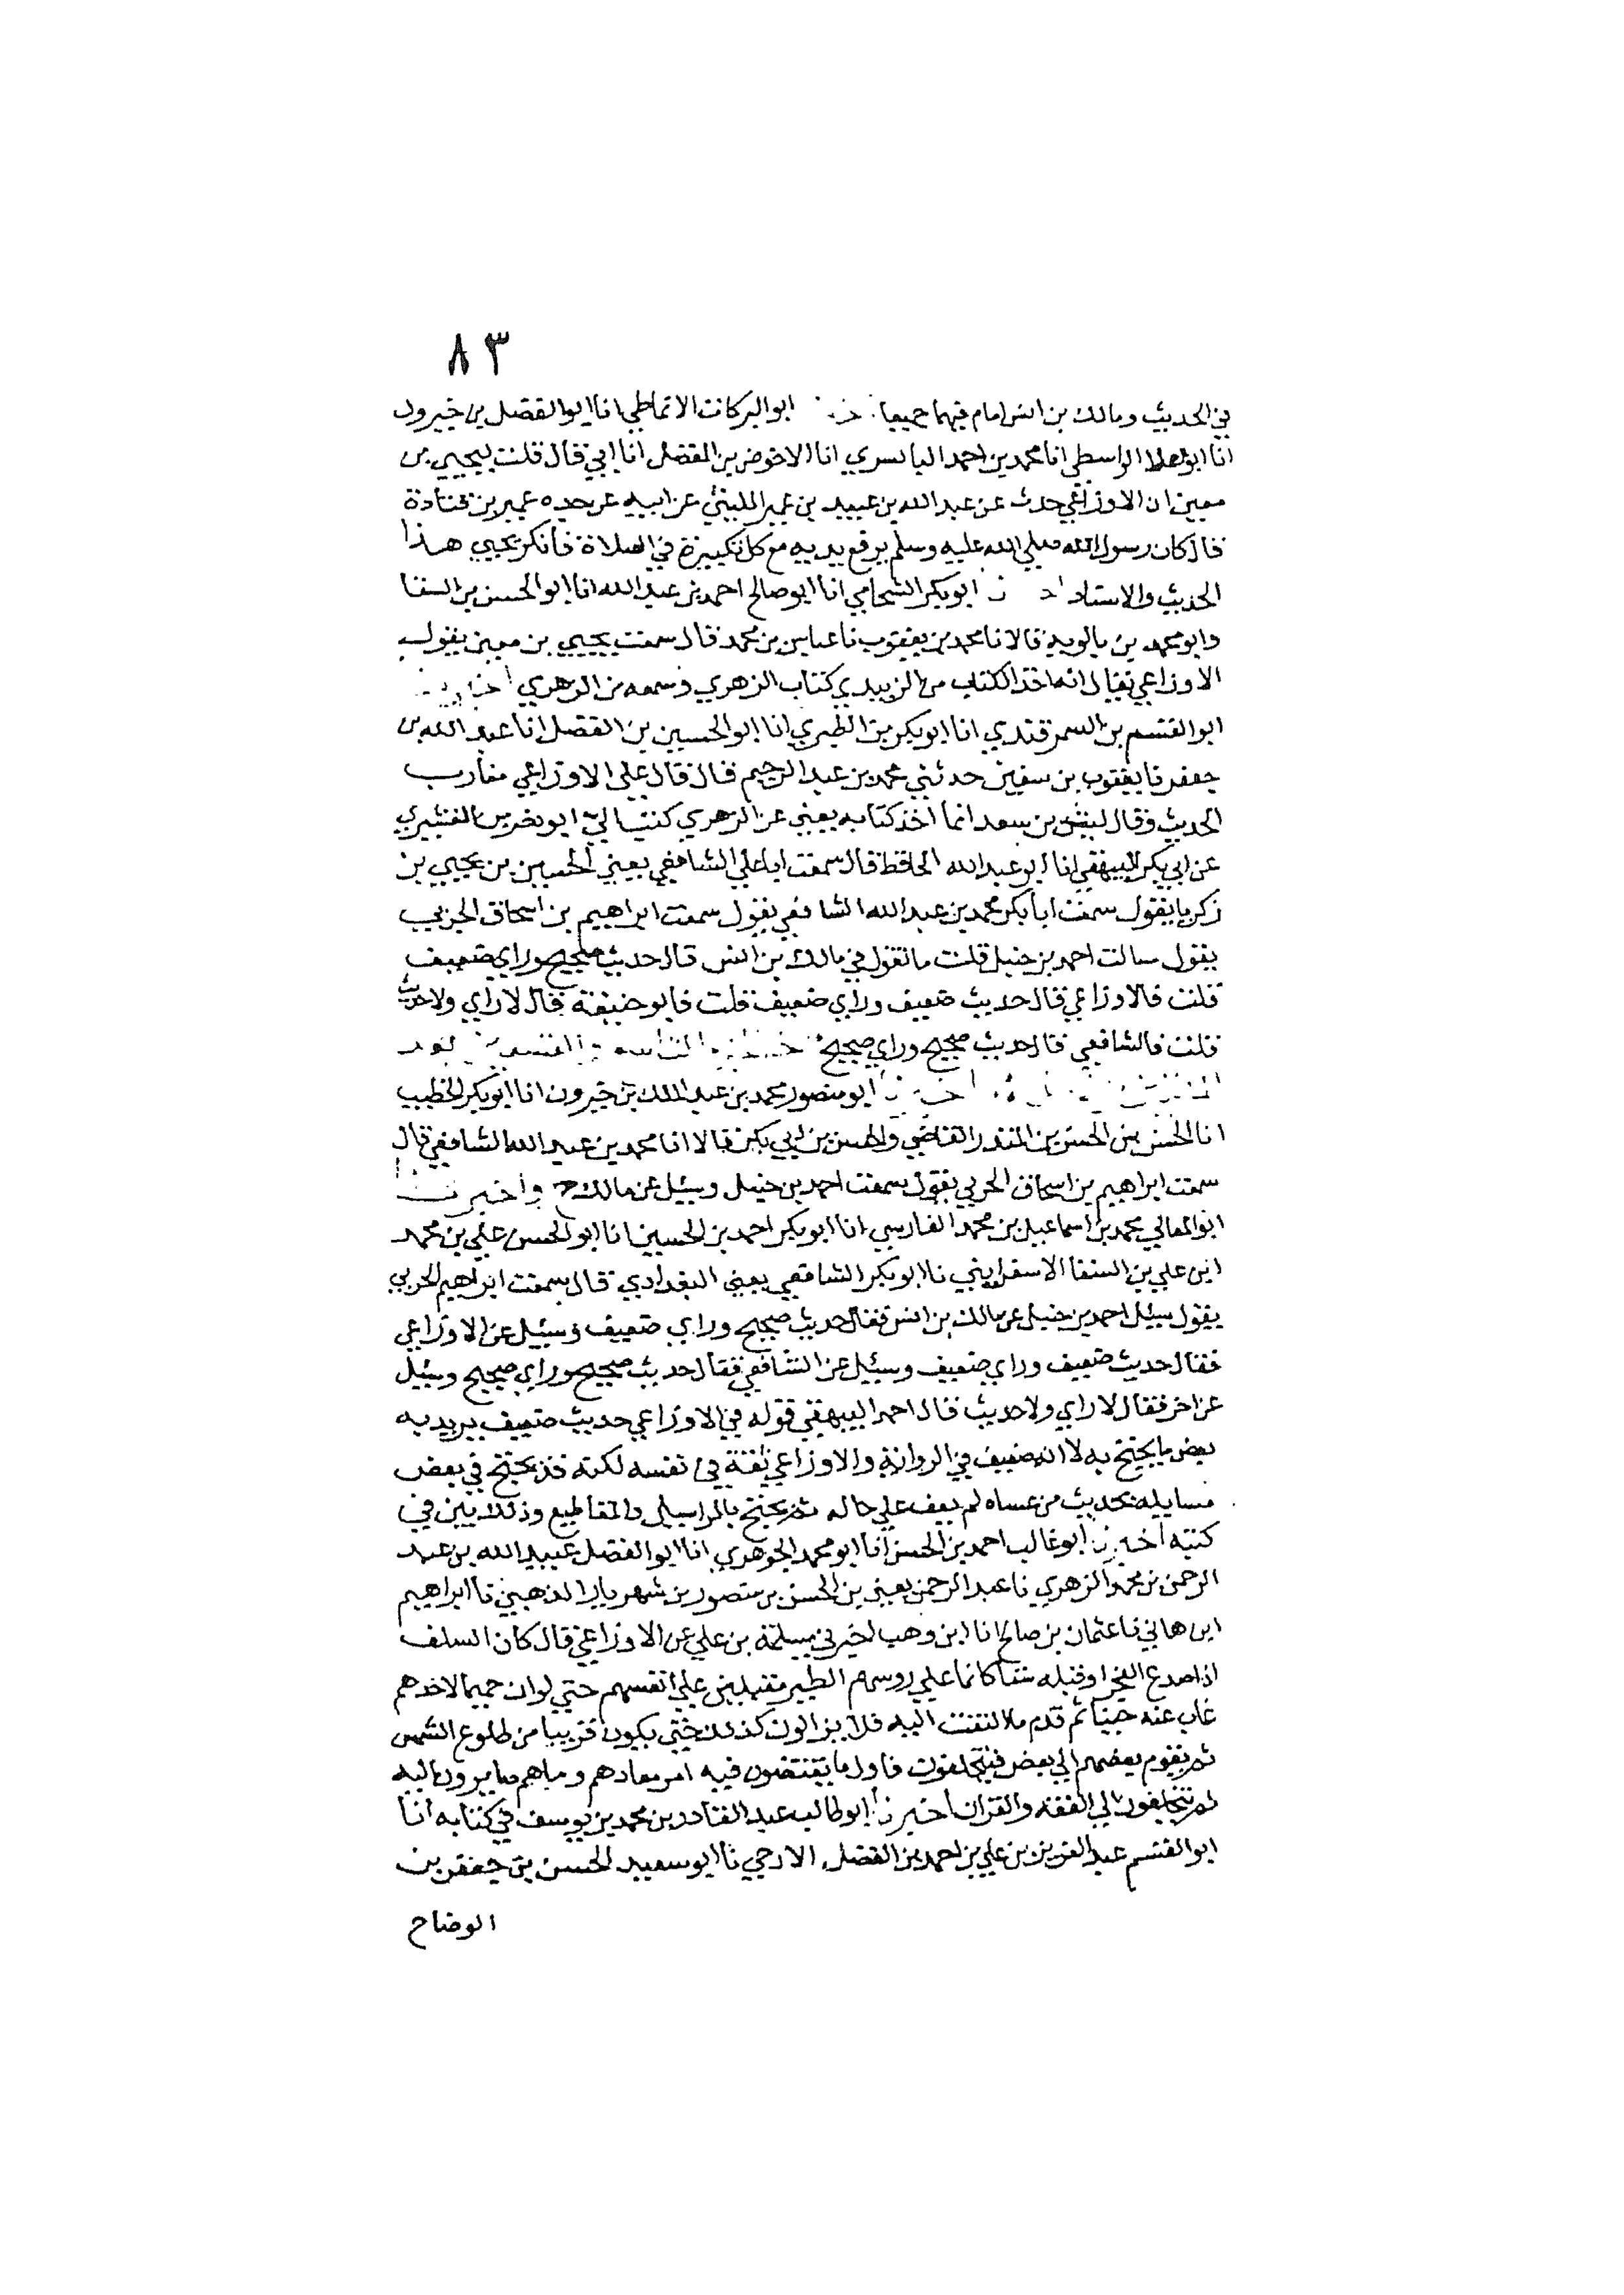 ٨٣
في الحديث ومالك بن انس امام فيهما جميعا ابو البركات الانماطي انا ابو الفضل بن خيرون
انا ابو العلا الواسطي انا محمد بن احمد البابسري انا الاحوص بن المفضل انا ابي قال قلت ليحيي بن
معين ان الاوزاعي حدث عن عبد الله بن عبيد بن عمير الليثي عن ابيه عن جده عمير بن قتادة
قال كان رسول الله صلي الله عليه وسلم يرفع يديه مع كل تكبيرة في الصلاة فانكر يحيي هذا
الحديث والاسناد ابو بكر الشحامي انا ابو صالح احمد بن عبد الله انا ابو الحسن بن السقا
وابو محمد بن بالويه قالا نا محمد بن يعقوب نا عباس بن محمد قال سمعت يحيي بن معين يقول
الاوزاعي يقال انه اخذ الكتاب من الزبيدي كتاب الزهري وسمعه من الزهري
ابو القسم بن السمرقندي انا ابو بكر بن الطبري انا ابو الحسين بن الفضل انا عبد الله بن
جعفر نا يعقوب بن سفين حدثني محمد بن عبد الرحيم قال قال علي الاوزاعي مقارب
الحديث وقال ليث بن سعد انما اخذ كتابه يعني عن الزهري كتب الي ابو نصر بن القشيري
عن ابي بكر البيهقي انا ابو عبد الله الحافظ قال سمعت ابا علي الشافعي يعني الحسين بن يحيي بن
زكريا يقول سمعت ابا بكر محمد بن عبد الله الشافعي يقول سمعت ابراهيم بن اسحاق الحربي
يقول سالت احمد بن حنبل قلت ما تقول في مالك بن انس قال حديث صحيح وراي ضعيف
قلت فالاوزاعي قال حديث ضعيف وراي ضعيف قلت فابو حنيفة قال لا راي ولا حديث
قلت فالشافعي قال حديث صحيح وراي صحيح
ابو منصور محمد بن عبد الملك بن خيرون انا ابو بكر الخطيب
انا الحسن بن الحسن بن المنذر القاضي والحسن بن ابي بكر قالا انا محمد بن عبد الله الشافعي قال
سمعت ابراهيم بن اسحاق الحربي يقول سمعت احمد بن حنبل وسيل عن مالك ح واخبرنا
ابو المعالي محمد بن اسماعيل بن محمد الفارسي انا ابو بكر احمد بن الحسين انا ابو الحسن علي بن محمد
ابن علي بن السقا الاسفرايني نا ابو بكر الشافعي يعني البغدادي قال سمعت ابراهيم الحربي
يقول سيل احمد بن حنبل عن مالك بن انس فقال حديث صحيح وراي ضعيف وسيل عن الاوزاعي
فقال حديث ضعيف وراي ضعيف وسيل عن الشافعي فقال حديث صحيح وراي صحيح وسيل
عن اخر فقال لا راي ولا حديث قال احمد البيهقي قوله في الاوزاعي حديث ضعيف يريد به
بعض ما يحتج به لا انه ضعيف في الرواية والاوزاعي ثقة في نفسه لكنه قد يحتج في بعض
مسايله بحديث من عساه لم يقف علي حاله ثم يحتج بالمراسيل والمقاطيع وذلك بين في
كتبه اخبرنا ابو غالب احمد بن الحسن انا ابو محمد الجوهري انا ابو الفضل عبيد الله بن عبد
الرحمن بن محمد الزهري نا عبد الرحمن يعني بن الحسن بن منصور بن شهريار الذهبي نا ابراهيم
ابن هاني نا عثمان بن صالح انا ابن وهب اخبرني مسلمة بن علي عن الاوزاعي قال كان السلف
اذا صدع الفجر او قبله شيا كانما علي روسهم الطير مقبلين علي انفسهم حتي لو ان حميما لاحدهم
غاب عنه حينا ثم قدم ما التفت اليه فلا يزالون كذلك حتي يكون قريبا من طلوع الشمس
ثم يقوم بعضهم الي بعض فيتحلقون فاول ما يقتضون فيه امر معادهم وما هم صايرون اليه
ثم يتحلقون الي الفقه والقران اخبرنا ابو طالب عبد القادر بن محمد بن يوسف في كتابه انا
ابو القسم عبد العزيز بن علي بن احمد بن الفضل الارجي نا ابو سعيد الحسن بن جعفر بن
الوضاح